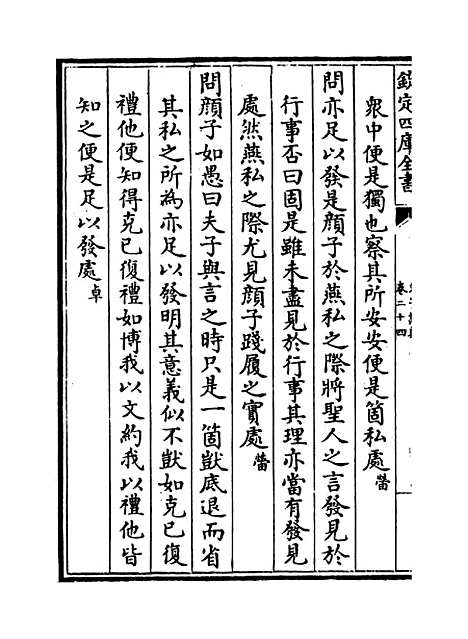 欽定四庫全書
卷二十四
衆中便是獨也察其所安安便是箇私處㽦
問亦足以發是顔子於燕私之際將聖人之言發見於
行事否曰固是雖未盡見於行事其理亦當有發見
處然燕私之際尤見顔子踐履之實處㽦
問顔子如愚曰夫子與言之時只是一箇獃底退而省
其私之所為亦足以發明其意義似不獃如克已復
禮他便知得克已復禮如博我以文約我以禮他皆
知之便是足以發處卓